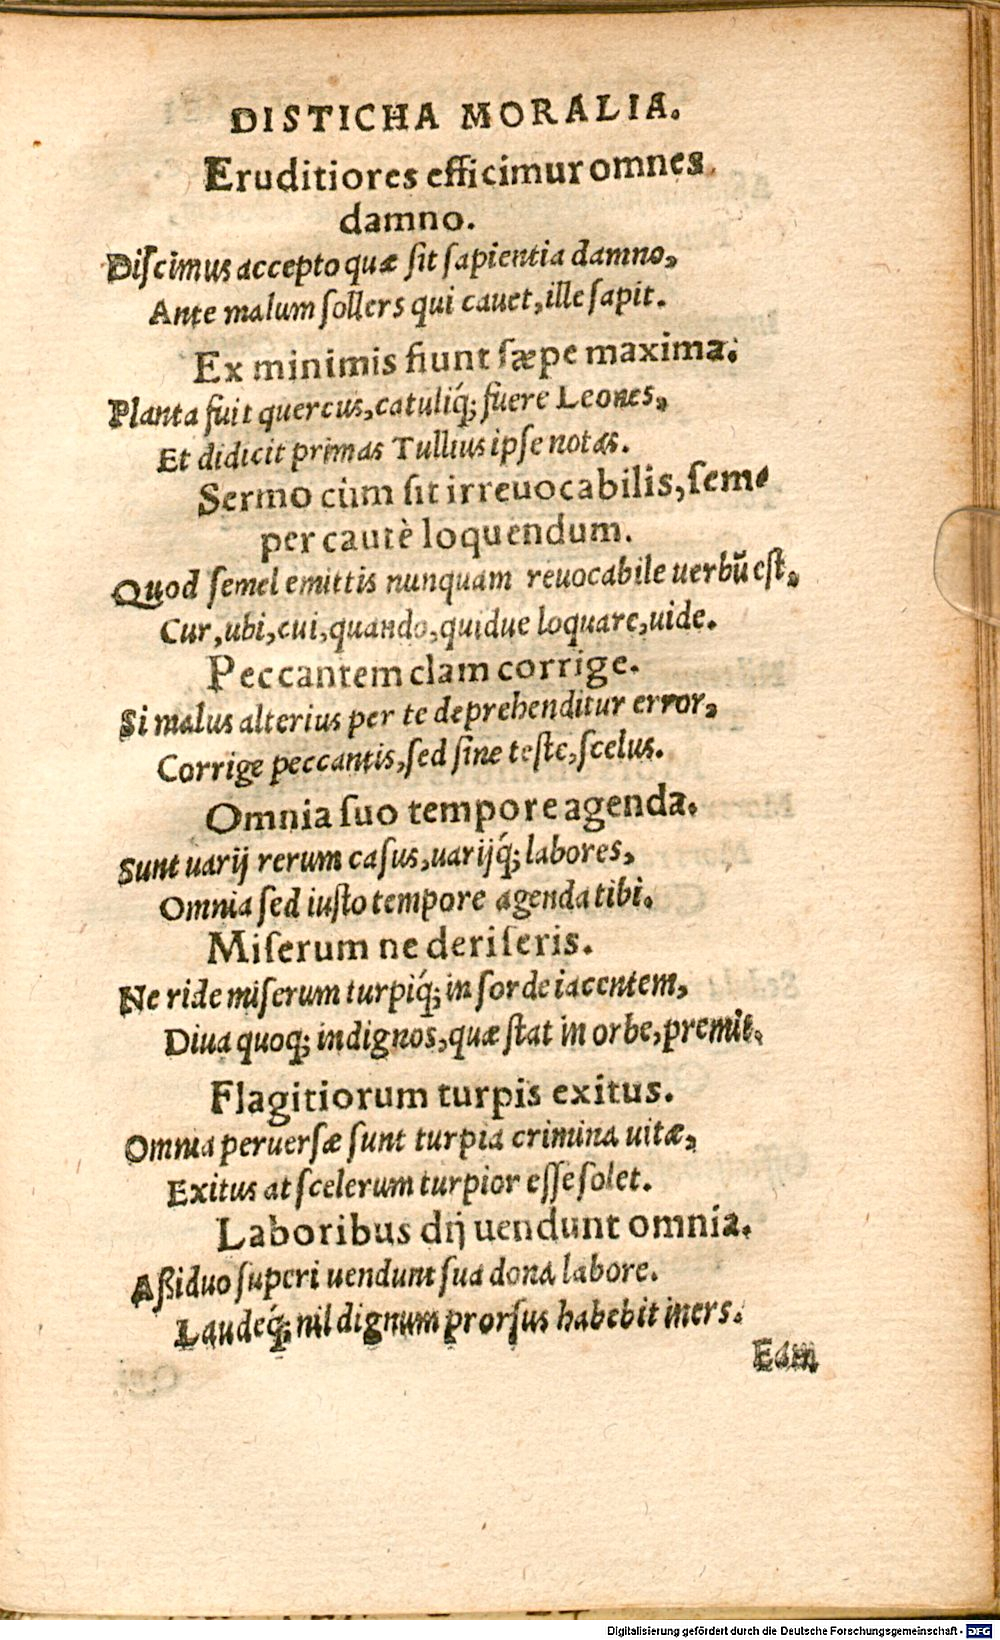 DISTICHA MORALIA.
Eruditiores efficimur omnes
damno.
Diſcimus accepto quæ ſit ſapientia damno,
Ante malum ſollers qui cauet, ille ſapit.
Ex minimis fiunt ſæpe maxima.
Planta fuit quercus, catuliq́; fuere Leones,
Et didicit primas Tullius ipſe notas.
Sermo cùm ſit irreuocabilis, ſem-
per cautè loquendum.
Quod ſemel emittis nunquam reuocabile uerbũ eſt,
Cur, ubi, cui, quando, quidue loquare, uide.
Peccantem clam corrige.
Si malus alterius per te deprehenditur error,
Corrige peccantis, ſed ſine teſte, ſcelus.
Omnia ſuo tempore agenda.
Sunt uarij rerum caſus, uarijq́; labores,
Omnia ſed iuſto tempore agenda tibi.
Miſerum ne deriſeris.
Ne ride miſerum turpiq́; in ſorde iacentem,
Diua quoq; indignos, quæ ſtat in orbe, premit.
Flagitiorum turpis exitus.
Omnia peruerſæ ſunt turpia crimina uitæ,
Exitus at ſcelerum turpior eſſe ſolet.
Laboribus dij uendunt omnia.
Aßiduo ſuperi uendunt ſua dona labore.
Laudeq́; nil dignum prorſus habebit iners.
Eam
Digitalisierung gefördert durch die Deutsche Forschungsgemeinschaft - DFG